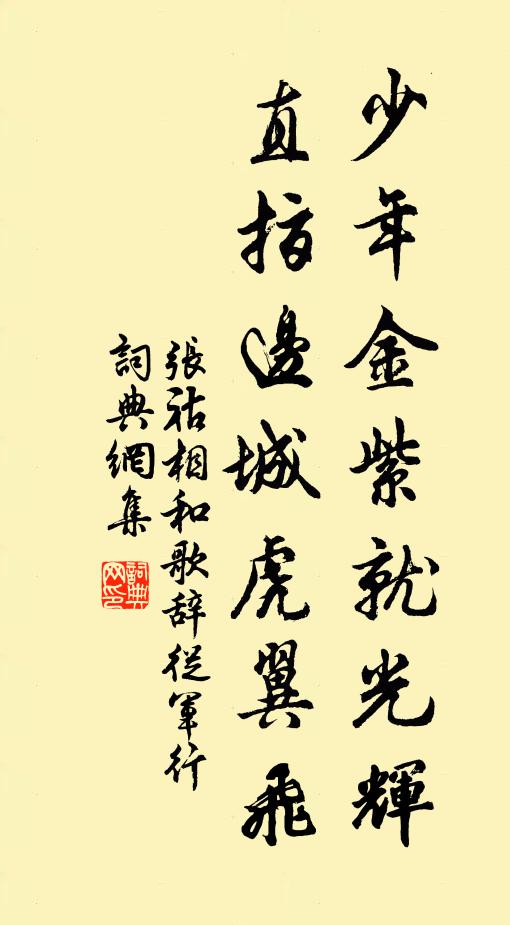 少年金紫就光輝
直指邊城虎翼飛
張祜相和歌辞從軍行
詞典網集
詞典
网印